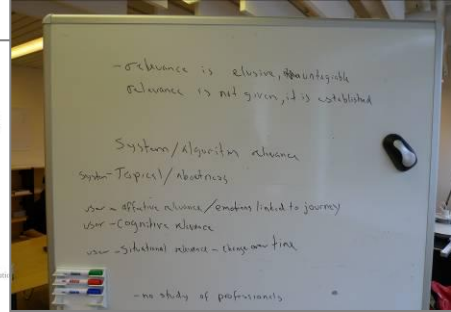 - relevance is elusive,
relevance is not given, it is established
System/Algorithm relevance
System - Topical/aboutness
user - affective relevance/emotions linked to journey
user - Cognitive relevance
user - Situational relevance - change over time
- no study of professionals